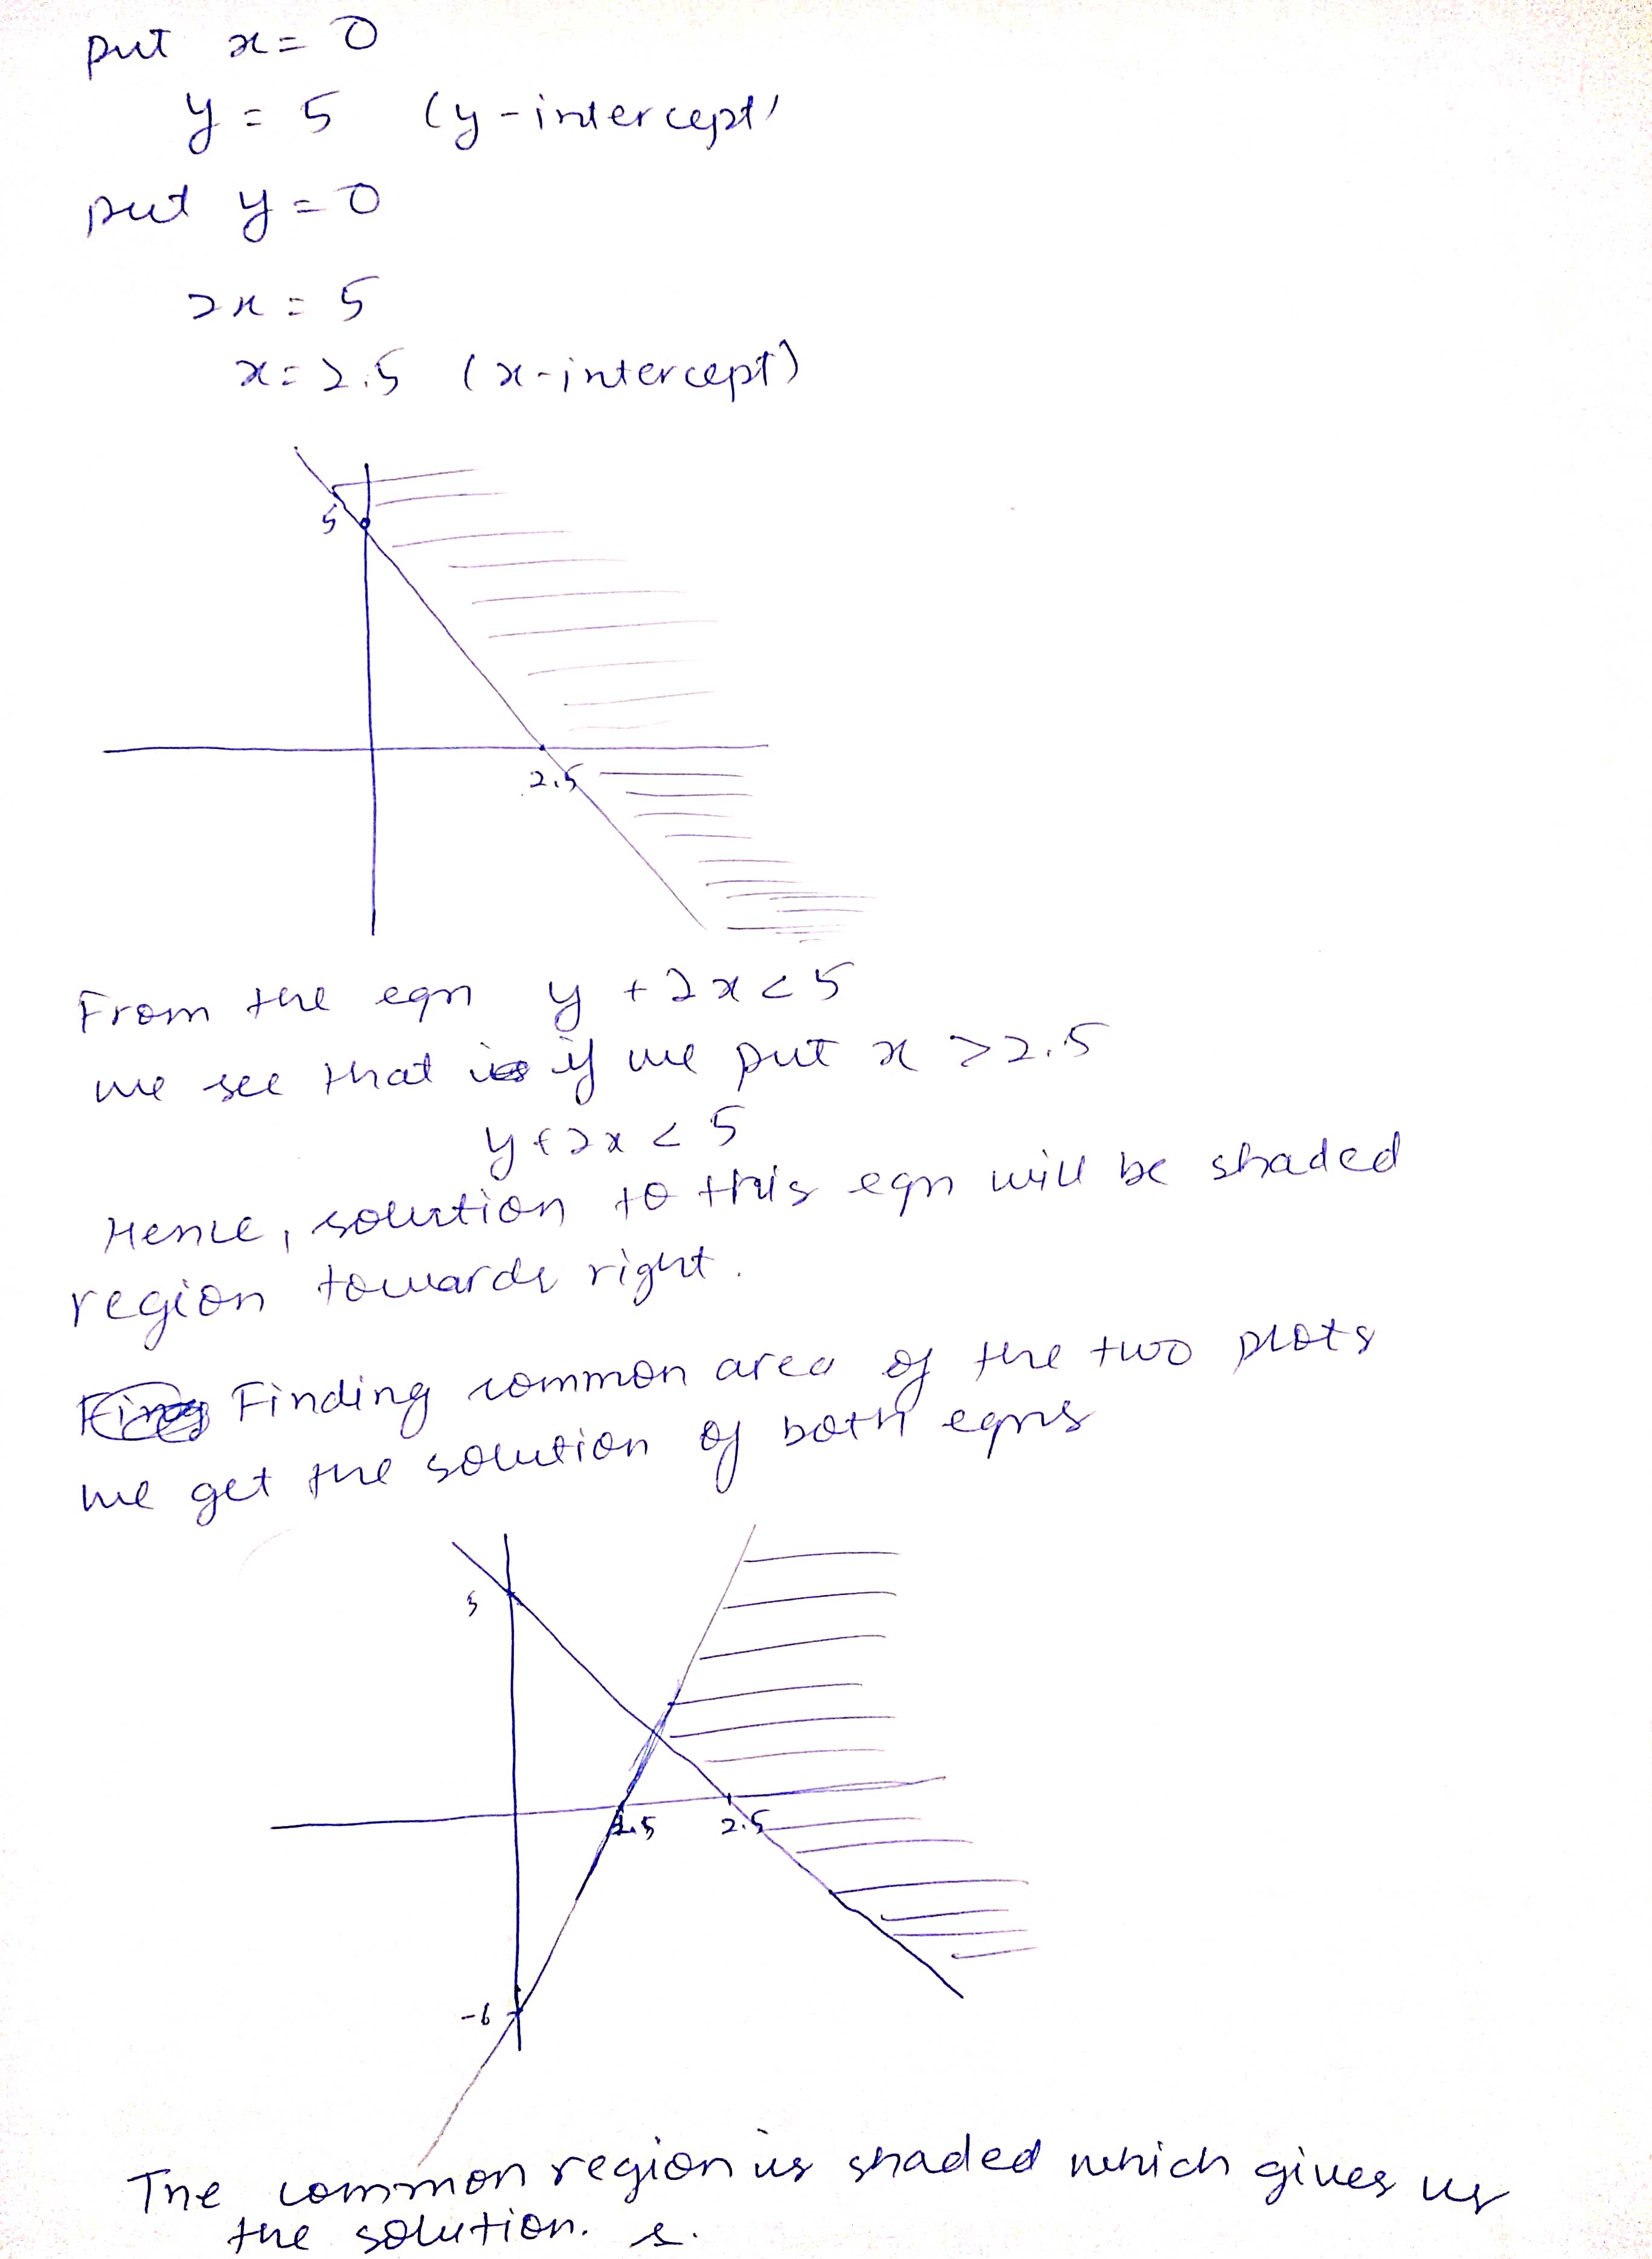 put x = 0
y = 5 (y-intercept)
put y = 0
2x = 5
x = 2.5 (x-intercept)
5
2.5
From the eqn y + 2x < 5
we see that if we put x > 2.5
y + 2x < 5
Hence, solution to this eqn will be shaded
region towards right.
Finding common area of the two plots
we get the solution of both eqns
5
.5 2.5
-6
The common region is shaded which gives us
the solution.